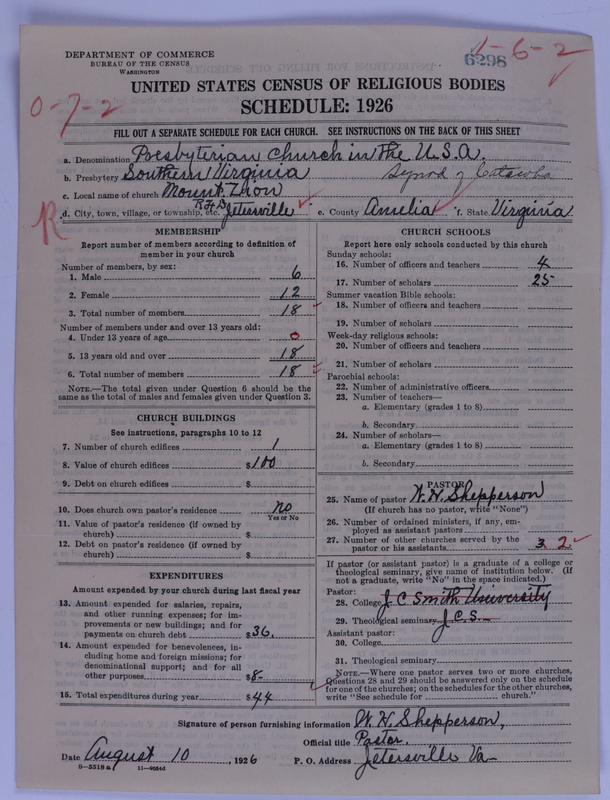 DEPARTMENT OF COMMERCE
BUREAU OF THE CENSUS
WASHINGTON
6298
1-6-2
0-7-2
UNITED STATES CENSUS OF RELIGIOUS BODIES
SCHEDULE: 1926
FILL OUT A SEPARATE SCHEDULE FOR EACH CHURCH. SEE INSTRUCTIONS ON THE BACK OF THIS SHEET
a. Denomination Presbyterian Church in the U.S.A.
b. Presbytery Southern Virginia Synod of Catawba
c. Local name of church Mount Zion
R
d. City, town, village, or township, etc. R.F.D. Jetersville e. County Amelia f. State Virginia
MEMBERSHIP
Report number of members according to definition of
member in your church
Number of members, by sex:
1. Male 6
2. Female 12
3. Total number of members 18
Number of members under and over 13 years old:
4. Under 13 years of age 0
5. 13 years old and over 18
6. Total number of members 18
NOTE.—The total given under Question 6 should be the
same as the total of males and females given under Question 3.
CHURCH BUILDINGS
See instructions, paragraphs 10 to 12
7. Number of church edifices 1
8. Value of church edifices $100
9. Debt on church edifices $
10. Does church own pastor's residence no
Yes or No
11. Value of pastor's residence (if owned by
church) $
12. Debt on pastor's residence (if owned by
church) $
EXPENDITURES
Amount expended by your church during last fiscal year
13. Amount expended for salaries, repairs,
and other running expenses; for im-
provements or new buildings; and for
payments on church debt $36.
14. Amount expended for benevolences, in-
cluding home and foreign missions; for
denominational support; and for all
other purposes $8-
15. Total expenditures during year $44
CHURCH SCHOOLS
Report here only schools conducted by this church
Sunday schools:
16. Number of officers and teachers 4
17. Number of scholars 25
Summer vacation Bible schools:
18. Number of officers and teachers
19. Number of scholars
Week-day religious schools:
20. Number of officers and teachers
21. Number of scholars
Parochial schools:
22. Number of administrative officers
23. Number of teachers—
a. Elementary (grades 1 to 8)
b. Secondary
24. Number of scholars—
a. Elementary (grades 1 to 8)
b. Secondary
PASTOR
25. Name of pastor W. H. Shepperson
(If church has no pastor, write "None")
26. Number of ordained ministers, if any, em-
ployed as assistant pastors
27. Number of other churches served by the
pastor or his assistants 3 2
If pastor (or assistant pastor) is a graduate of a college or
theological seminary, give name of institution below. (If
not a graduate, write "No" in the space indicated.)
Pastor:
28. College J C Smith University
29. Theological seminary J. C. S.
Assistant pastor:
30. College
31. Theological seminary
NOTE.—Where one pastor serves two or more churches,
Questions 28 and 29 should be answered only on the schedule
for one of the churches; on the schedules for the other churches,
write "See schedule for church."
Signature of person furnishing information W. H. Shepperson,
Official title Pastor.
Date August 10, 1926 P. O. Address Jetersville Va-
8-5518a 11-9654d